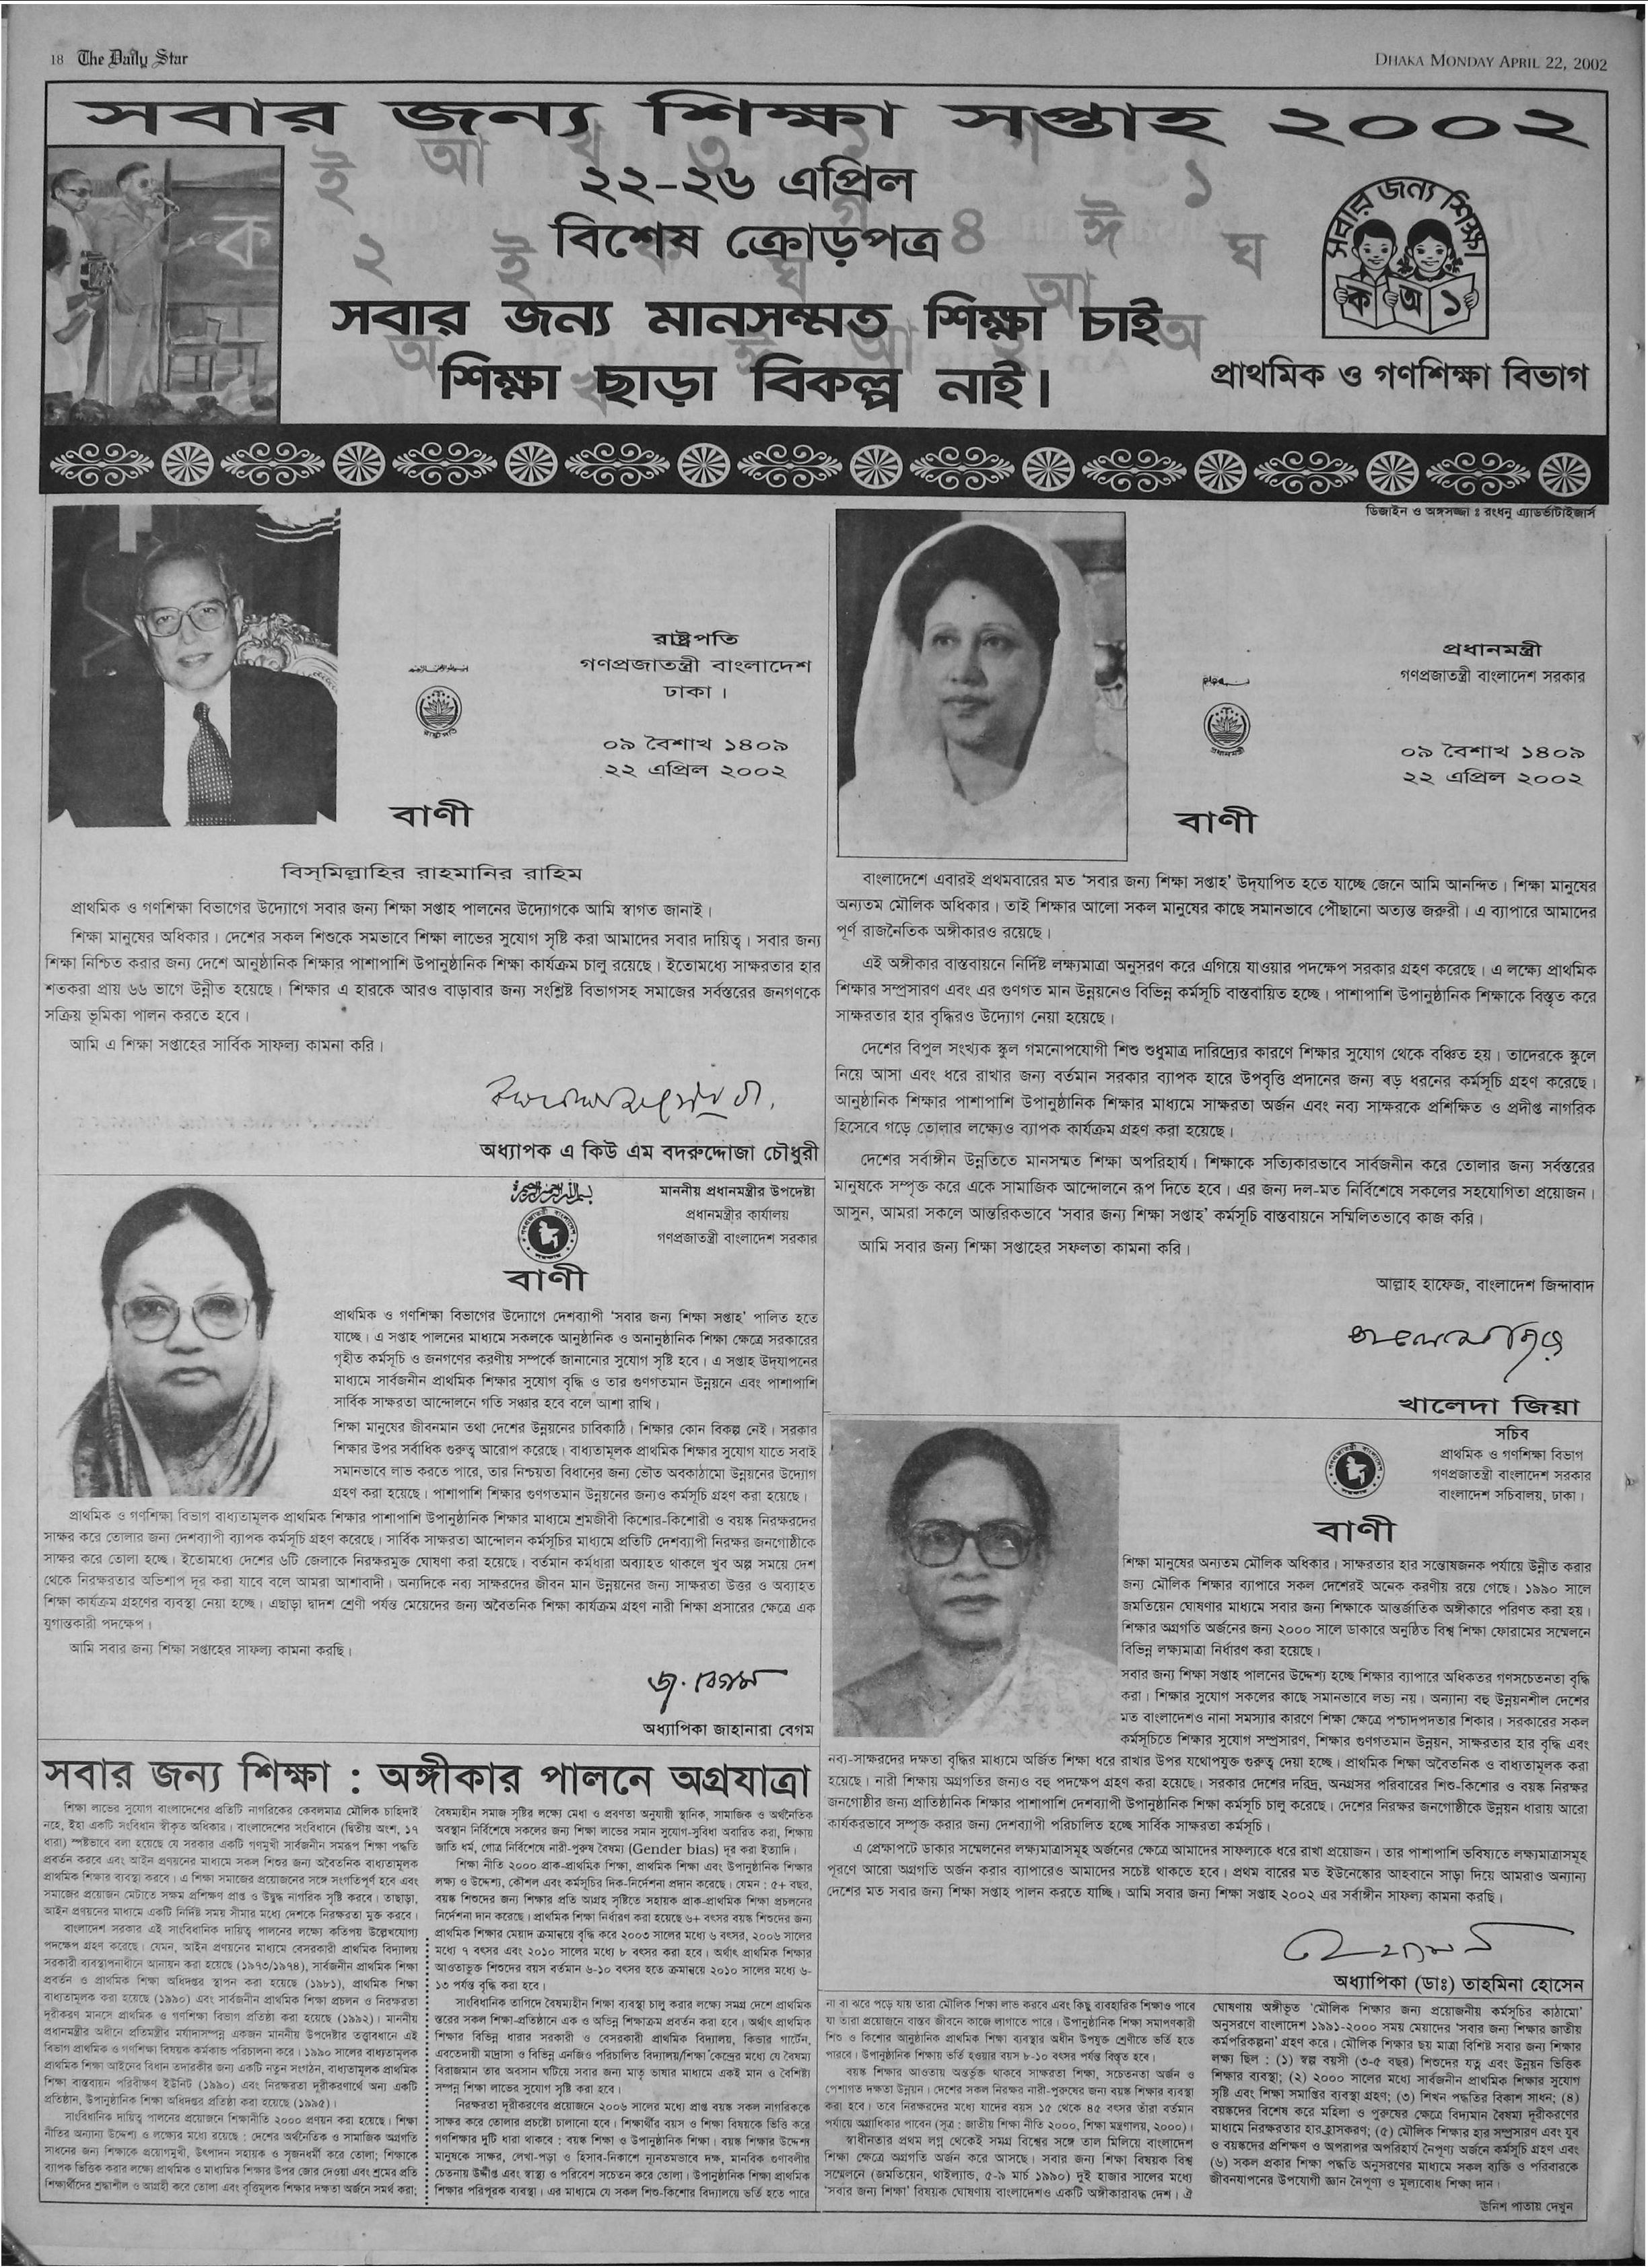 18 The Daily Star
DHAKA MONDAY APRIL 22, 2002
সবার জন্য শিক্ষা সপ্তাহ ২০০২
২২-২৬ এপ্রিল
বিশেষ ক্রোড়পত্র
সবার জন্য মানসম্মত শিক্ষা চাই
শিক্ষা ছাড়া বিকল্প নাই।
ক
সবার জন্য শিক্ষা
ক অ ১
প্রাথমিক ও গণশিক্ষা বিভাগ
ডিজাইন ও অঙ্গসজ্জা ঃ রংধনু এ্যাডর্ভাটাইজার্স
রাষ্ট্রপতি
গণপ্রজাতন্ত্রী বাংলাদেশ
ঢাকা।
০৯ বৈশাখ ১৪০৯
২২ এপ্রিল ২০০২
বাণী
বিস্‌মিল্লাহির রাহমানির রাহিম
প্রাথমিক ও গণশিক্ষা বিভাগের উদ্যোগে সবার জন্য শিক্ষা সপ্তাহ পালনের উদ্যোগকে আমি স্বাগত জানাই।
শিক্ষা মানুষের অধিকার। দেশের সকল শিশুকে সমভাবে শিক্ষা লাভের সুযোগ সৃষ্টি করা আমাদের সবার দায়িত্ব। সবার জন্য
শিক্ষা নিশ্চিত করার জন্য দেশে আনুষ্ঠানিক শিক্ষার পাশাপাশি উপানুষ্ঠানিক শিক্ষা কার্যক্রম চালু রয়েছে। ইতোমধ্যে সাক্ষরতার হার
শতকরা প্রায় ৬৬ ভাগে উন্নীত হয়েছে। শিক্ষার এ হারকে আরও বাড়াবার জন্য সংশ্লিষ্ট বিভাগসহ সমাজের সর্বস্তরের জনগণকে
সক্রিয় ভূমিকা পালন করতে হবে।
আমি এ শিক্ষা সপ্তাহের সার্বিক সাফল্য কামনা করি।
অধ্যাপক এ কিউ এম বদরুদ্দোজা চৌধুরী
প্রধানমন্ত্রী
গণপ্রজাতন্ত্রী বাংলাদেশ সরকার
০৯ বৈশাখ ১৪০৯
২২ এপ্রিল ২০০২
বাণী
বাংলাদেশে এবারই প্রথমবারের মত ‘সবার জন্য শিক্ষা সপ্তাহ’ উদ্‌যাপিত হতে যাচ্ছে জেনে আমি আনন্দিত। শিক্ষা মানুষের
অন্যতম মৌলিক অধিকার। তাই শিক্ষার আলো সকল মানুষের কাছে সমানভাবে পৌছানো অত্যন্ত জরুরী। এ ব্যাপারে আমাদের
পূর্ণ রাজনৈতিক অঙ্গীকারও রয়েছে।
এই অঙ্গীকার বাস্তবায়নে নির্দিষ্ট লক্ষ্যমাত্রা অনুসরণ করে এগিয়ে যাওয়ার পদক্ষেপ সরকার গ্রহণ করেছে। এ লক্ষ্যে প্রাথমিক
শিক্ষার সম্প্রসারণ এবং এর গুণগত মান উন্নয়নেও বিভিন্ন কর্মসূচি বাস্তবায়িত হচ্ছে। পাশাপাশি উপানুষ্ঠানিক শিক্ষাকে বিস্তৃত করে
সাক্ষরতার হার বৃদ্ধিরও উদ্যোগ নেয়া হয়েছে।
দেশের বিপুল সংখ্যক স্কুল গমনোপযোগী শিশু শুধুমাত্র দারিদ্র্যের কারণে শিক্ষার সুযোগ থেকে বঞ্চিত হয়। তাদেরকে স্কুলে
নিয়ে আসা এবং ধরে রাখার জন্য বর্তমান সরকার ব্যাপক হারে উপবৃত্তি প্রদানের জন্য বড় ধরনের কর্মসূচি গ্রহণ করেছে।
আনুষ্ঠানিক শিক্ষার পাশাপাশি উপানুষ্ঠানিক শিক্ষার মাধ্যমে সাক্ষরতা অর্জন এবং নব্য সাক্ষরকে প্রশিক্ষিত ও প্রদীপ্ত নাগরিক
হিসেবে গড়ে তোলার লক্ষ্যেও ব্যাপক কার্যক্রম গ্রহণ করা হয়েছে।
দেশের সর্বাঙ্গীন উন্নতিতে মানসম্মত শিক্ষা অপরিহার্য। শিক্ষাকে সত্যিকারভাবে সার্বজনীন করে তোলার জন্য সর্বস্তরের
মানুষকে সম্পৃক্ত করে একে সামাজিক আন্দোলনে রূপ দিতে হবে। এর জন্য দল-মত নির্বিশেষে সকলের সহযোগিতা প্রয়োজন।
আসুন, আমরা সকলে আন্তরিকভাবে ‘সবার জন্য শিক্ষা সপ্তাহ’ কর্মসূচি বাস্তবায়নে সম্মিলিতভাবে কাজ করি।
আমি সবার জন্য শিক্ষা সপ্তাহের সফলতা কামনা করি।
আল্লাহ হাফেজ, বাংলাদেশ জিন্দাবাদ
খালেদা জিয়া
মাননীয় প্রধানমন্ত্রীর উপদেষ্টা
প্রধানমন্ত্রীর কার্যালয়
গণপ্রজাতন্ত্রী বাংলাদেশ সরকার
বাণী
প্রাথমিক ও গণশিক্ষা বিভাগের উদ্যোগে দেশব্যাপী ‘সবার জন্য শিক্ষা সপ্তাহ’ পালিত হতে
যাচ্ছে। এ সপ্তাহ পালনের মাধ্যমে সকলকে আনুষ্ঠানিক ও অনানুষ্ঠানিক শিক্ষা ক্ষেত্রে সরকারের
গৃহীত কর্মসূচি ও জনগণের করণীয় সম্পর্কে জানানোর সুযোগ সৃষ্টি হবে। এ সপ্তাহ উদ্‌যাপনের
মাধ্যমে সার্বজনীন প্রাথমিক শিক্ষার সুযোগ বৃদ্ধি ও তার গুণগতমান উন্নয়নে এবং পাশাপাশি
সার্বিক সাক্ষরতা আন্দোলনে গতি সঞ্চার হবে বলে আশা রাখি।
শিক্ষা মানুষের জীবনমান তথা দেশের উন্নয়নের চাবিকাঠি। শিক্ষার কোন বিকল্প নেই। সরকার
শিক্ষার উপর সর্বাধিক গুরুত্ব আরোপ করেছে। বাধ্যতামূলক প্রাথমিক শিক্ষার সুযোগ যাতে সবাই
সমানভাবে লাভ করতে পারে, তার নিশ্চয়তা বিধানের জন্য ভৌত অবকাঠামো উন্নয়নের উদ্যোগ
গ্রহণ করা হয়েছে। পাশাপাশি শিক্ষার গুণগতমান উন্নয়নের জন্যও কর্মসূচি গ্রহণ করা হয়েছে।
প্রাথমিক ও গণশিক্ষা বিভাগ বাধ্যতামূলক প্রাথমিক শিক্ষার পাশাপাশি উপানুষ্ঠানিক শিক্ষার মাধ্যমে শ্রমজীবী কিশোর-কিশোরী ও বয়স্ক নিরক্ষরদের
সাক্ষর করে তোলার জন্য দেশব্যাপী ব্যাপক কর্মসূচি গ্রহণ করেছে। সার্বিক সাক্ষরতা আন্দোলন কর্মসূচির মাধ্যমে প্রতিটি দেশব্যাপী নিরক্ষর জনগোষ্ঠীকে
সাক্ষর করে তোলা হচ্ছে। ইতোমধ্যে দেশের ৬টি জেলাকে নিরক্ষরমুক্ত ঘোষণা করা হয়েছে। বর্তমান কর্মধারা অব্যাহত থাকলে খুব অল্প সময়ে দেশ
থেকে নিরক্ষরতার অভিশাপ দূর করা যাবে বলে আমরা আশাবাদী। অন্যদিকে নব্য সাক্ষরদের জীবন মান উন্নয়নের জন্য সাক্ষরতা উত্তর ও অব্যাহত
শিক্ষা কার্যক্রম গ্রহণের ব্যবস্থা নেয়া হচ্ছে। এছাড়া দ্বাদশ শ্রেণী পর্যন্ত মেয়েদের জন্য অবৈতনিক শিক্ষা কার্যক্রম গ্রহণ নারী শিক্ষা প্রসারের ক্ষেত্রে এক
যুগান্তকারী পদক্ষেপ।
আমি সবার জন্য শিক্ষা সপ্তাহের সাফল্য কামনা করছি।
জ. বেগম
অধ্যাপিকা জাহানারা বেগম
সচিব
প্রাথমিক ও গণশিক্ষা বিভাগ
গণপ্রজাতন্ত্রী বাংলাদেশ সরকার
বাংলাদেশ সচিবালয়, ঢাকা।
বাণী
শিক্ষা মানুষের অন্যতম মৌলিক অধিকার। সাক্ষরতার হার সন্তোষজনক পর্যায়ে উন্নীত করার
জন্য মৌলিক শিক্ষার ব্যাপারে সকল দেশেরই অনেক করণীয় রয়ে গেছে। ১৯৯০ সালে
জমতিয়েন ঘোষণার মাধ্যমে সবার জন্য শিক্ষাকে আন্তর্জাতিক অঙ্গীকারে পরিণত করা হয়।
শিক্ষার অগ্রগতি অর্জনের জন্য ২০০০ সালে ডাকারে অনুষ্ঠিত বিশ্ব শিক্ষা ফোরামের সম্মেলনে
বিভিন্ন লক্ষ্যমাত্রা নির্ধারণ করা হয়েছে।
সবার জন্য শিক্ষা সপ্তাহ পালনের উদ্দেশ্য হচ্ছে শিক্ষার ব্যাপারে অধিকতর গণসচেতনতা বৃদ্ধি
করা। শিক্ষার সুযোগ সকলের কাছে সমানভাবে লভ্য নয়। অন্যান্য বহু উন্নয়নশীল দেশের
মত বাংলাদেশও নানা সমস্যার কারণে শিক্ষা ক্ষেত্রে পশ্চাদপদতার শিকার। সরকারের সকল
কর্মসূচিতে শিক্ষার সুযোগ সম্প্রসারণ, শিক্ষার গুণগতমান উন্নয়ন, সাক্ষরতার হার বৃদ্ধি এবং
নব্য-সাক্ষরদের দক্ষতা বৃদ্ধির মাধ্যমে অর্জিত শিক্ষা ধরে রাখার উপর যথোপযুক্ত গুরুত্ব দেয়া হচ্ছে। প্রাথমিক শিক্ষা অবৈতনিক ও বাধ্যতামূলক করা
হয়েছে। নারী শিক্ষায় অগ্রগতির জন্যও বহু পদক্ষেপ গ্রহণ করা হয়েছে। সরকার দেশের দরিদ্র, অনগ্রসর পরিবারের শিশু-কিশোর ও বয়স্ক নিরক্ষর
জনগোষ্ঠীর জন্য প্রাতিষ্ঠানিক শিক্ষার পাশাপাশি দেশব্যাপী উপানুষ্ঠানিক শিক্ষা কর্মসূচি চালু করেছে। দেশের নিরক্ষর জনগোষ্ঠীকে উন্নয়ন ধারায় আরো
কার্যকরভাবে সম্পৃক্ত করার জন্য দেশব্যাপী পরিচালিত হচ্ছে সার্বিক সাক্ষরতা কর্মসূচি।
এ প্রেক্ষাপটে ডাকার সম্মেলনের লক্ষ্যমাত্রাসমূহ অর্জনের ক্ষেত্রে আমাদের সাফল্যকে ধরে রাখা প্রয়োজন। তার পাশাপাশি ভবিষ্যতে লক্ষ্যমাত্রাসমূহ
পূরণে আরো অগ্রগতি অর্জন করার ব্যাপারেও আমাদের সচেষ্ট থাকতে হবে। প্রথম বারের মত ইউনেস্কোর আহবানে সাড়া দিয়ে আমরাও অন্যান্য
দেশের মত সবার জন্য শিক্ষা সপ্তাহ পালন করতে যাচ্ছি। আমি সবার জন্য শিক্ষা সপ্তাহ ২০০২ এর সর্বাঙ্গীন সাফল্য কামনা করছি।
অধ্যাপিকা (ডাঃ) তাহমিনা হোসেন
সবার জন্য শিক্ষা : অঙ্গীকার পালনে অগ্রযাত্রা
শিক্ষা লাভের সুযোগ বাংলাদেশের প্রতিটি নাগরিকের কেবলমাত্র মৌলিক চাহিদাই
নহে, ইহা একটি সংবিধান স্বীকৃত অধিকার। বাংলাদেশের সংবিধানে (দ্বিতীয় অংশ, ১৭
ধারা) স্পষ্টভাবে বলা হয়েছে যে সরকার একটি গণমুখী সার্বজনীন সমরূপ শিক্ষা পদ্ধতি
প্রবর্তন করবে এবং আইন প্রণয়নের মাধ্যমে সকল শিশুর জন্য অবৈতনিক বাধ্যতামূলক
প্রাথমিক শিক্ষার ব্যবস্থা করবে। এ শিক্ষা সমাজের প্রয়োজনের সঙ্গে সংগতিপূর্ণ হবে এবং
সমাজের প্রয়োজন মেটাতে সক্ষম প্রশিক্ষণ প্রাপ্ত ও উদ্বুদ্ধ নাগরিক সৃষ্টি করবে। তাছাড়া,
আইন প্রণয়নের মাধ্যমে একটি নির্দিষ্ট সময় সীমার মধ্যে দেশকে নিরক্ষরতা মুক্ত করবে।
বাংলাদেশ সরকার এই সাংবিধানিক দায়িত্ব পালনের লক্ষ্যে কতিপয় উল্লেখযোগ্য
পদক্ষেপ গ্রহণ করেছে। যেমন, আইন প্রণয়নের মাধ্যমে বেসরকারী প্রাথমিক বিদ্যালয়
সরকারী ব্যবস্থাপনাধীনে আনায়ন করা হয়েছে (১৯৭৩/১৯৭৪), সার্বজনীন প্রাথমিক শিক্ষা
প্রবর্তন ও প্রাথমিক শিক্ষা অধিদপ্তর স্থাপন করা হয়েছে (১৯৮১), প্রাথমিক শিক্ষা
বাধ্যতামূলক করা হয়েছে (১৯৯০) এবং সার্বজনীন প্রাথমিক শিক্ষা প্রচলন ও নিরক্ষরতা
দূরীকরণ মানসে প্রাথমিক ও গণশিক্ষা বিভাগ প্রতিষ্ঠা করা হয়েছে (১৯৯২)। মাননীয়
প্রধানমন্ত্রীর অধীনে প্রতিমন্ত্রীর মর্যাদাসম্পন্ন একজন মাননীয় উপদেষ্টার তত্ত্বাবধানে এই
বিভাগ প্রাথমিক ও গণশিক্ষা বিষয়ক কর্মকান্ড পরিচালনা করে। ১৯৯০ সালের বাধ্যতামূলক
প্রাথমিক শিক্ষা আইনের বিধান তদারকীর জন্য একটি নতুন সংগঠন, বাধ্যতামূলক প্রাথমিক
শিক্ষা বাস্তবায়ন পরিবীক্ষণ ইউনিট (১৯৯০) এবং নিরক্ষরতা দূরীকরণার্থে অন্য একটি
প্রতিষ্ঠান, উপানুষ্ঠানিক শিক্ষা অধিদপ্তর প্রতিষ্ঠা করা হয়েছে (১৯৯৫)।
সাংবিধানিক দায়িত্ব পালনের প্রয়োজনে শিক্ষানীতি ২০০০ প্রণয়ন করা হয়েছে। শিক্ষা
নীতির অন্যান্য উদ্দেশ্য ও লক্ষ্যের মধ্যে রয়েছে : দেশের অর্থনৈতিক ও সামাজিক অগ্রগতি
সাধনের জন্য শিক্ষাকে প্রয়োগমুখী, উৎপাদন সহায়ক ও সৃজনধর্মী করে তোলা; শিক্ষাকে
ব্যাপক ভিত্তিক করার লক্ষ্যে প্রাথমিক ও মাধ্যমিক শিক্ষার উপর জোর দেওয়া এবং শ্রমের প্রতি
শিক্ষার্থীদের শ্রদ্ধাশীল ও আগ্রহী করে তোলা এবং বৃত্তিমূলক শিক্ষার দক্ষতা অর্জনে সমর্থ করা;
বৈষম্যহীন সমাজ সৃষ্টির লক্ষ্যে মেধা ও প্রবণতা অনুযায়ী স্থানিক, সামাজিক ও অর্থনৈতিক
অবস্থান নির্বিশেষে সকলের জন্য শিক্ষা লাভের সমান সুযোগ-সুবিধা অবারিত করা, শিক্ষায়
জাতি ধর্ম, গোত্র নির্বিশেষে নারী-পুরুষ বৈষম্য (Gender bias) দূর করা ইত্যাদি।
শিক্ষা নীতি ২০০০ প্রাক-প্রাথমিক শিক্ষা, প্রাথমিক শিক্ষা এবং উপানুষ্ঠানিক শিক্ষার
লক্ষ্য ও উদ্দেশ্য, কৌশল এবং কর্মসূচির দিক-নির্দেশনা প্রদান করেছে। যেমন : ৫+ বছর,
বয়স্ক শিশুদের জন্য শিক্ষার প্রতি আগ্রহ সৃষ্টিতে সহায়ক প্রাক-প্রাথমিক শিক্ষা প্রচলনের
নির্দেশনা দান করেছে। প্রাথমিক শিক্ষা নির্ধারণ করা হয়েছে ৬+ বৎসর বয়স্ক শিশুদের জন্য
প্রাথমিক শিক্ষার মেয়াদ ক্রমান্বয়ে বৃদ্ধি করে ২০০৩ সালের মধ্যে ৬ বৎসর, ২০০৬ সালের
মধ্যে ৭ বৎসর এবং ২০১০ সালের মধ্যে ৮ বৎসর করা হবে। অর্থাৎ প্রাথমিক শিক্ষার
আওতাভুক্ত শিশুদের বয়স বর্তমান ৬-১০ বৎসর হতে ক্রমান্বয়ে ২০১০ সালের মধ্যে ৬-
১৩ পর্যন্ত বৃদ্ধি করা হবে।
সাংবিধানিক তাগিদে বৈষম্যহীন শিক্ষা ব্যবস্থা চালু করার লক্ষ্যে সমগ্র দেশে প্রাথমিক
স্তরের সকল শিক্ষা-প্রতিষ্ঠানে এক ও অভিন্ন শিক্ষাক্রম প্রবর্তন করা হবে। অর্থাৎ প্রাথমিক
শিক্ষার বিভিন্ন ধারার সরকারী ও বেসরকারী প্রাথমিক বিদ্যালয়, কিন্ডার গার্টেন,
এবতেদায়ী মাদ্রাসা ও বিভিন্ন এনজিও পরিচালিত বিদ্যালয়/শিক্ষা কেন্দ্রের মধ্যে যে বৈষম্য
বিরাজমান তার অবসান ঘটিয়ে সবার জন্য মাতৃ ভাষার মাধ্যমে একই মান ও বৈশিষ্ট্য
সম্পন্ন শিক্ষা লাভের সুযোগ সৃষ্টি করা হবে।
নিরক্ষরতা দূরীকরণের প্রয়োজনে ২০০৬ সালের মধ্যে প্রাপ্ত বয়স্ক সকল নাগরিককে
সাক্ষর করে তোলার প্রচেষ্টা চালানো হবে। শিক্ষার্থীর বয়স ও শিক্ষা বিষয়কে ভিত্তি করে
গণশিক্ষার দুটি ধারা থাকবে : বয়স্ক শিক্ষা ও উপানুষ্ঠানিক শিক্ষা। বয়স্ক শিক্ষার উদ্দেশ্য
মানুষকে সাক্ষর, লেখা-পড়া ও হিসাব-নিকাশে ন্যূনতমভাবে দক্ষ, মানবিক গুণাবলীর
চেতনায় উদ্দীপ্ত এবং স্বাস্থ্য ও পরিবেশ সচেতন করে তোলা। উপানুষ্ঠানিক শিক্ষা প্রাথমিক
শিক্ষার পরিপূরক ব্যবস্থা। এর মাধ্যমে যে সকল শিশু-কিশোর বিদ্যালয়ে ভর্তি হতে পারে
না বা ঝরে পড়ে যায় তারা মৌলিক শিক্ষা লাভ করবে এবং কিছু ব্যবহারিক শিক্ষাও পাবে
যা তারা প্রয়োজনে বাস্তব জীবনে কাজে লাগাতে পারে। উপানুষ্ঠানিক শিক্ষা সমাপণকারী
শিশু ও কিশোর আনুষ্ঠানিক প্রাথমিক শিক্ষা ব্যবস্থার অধীন উপযুক্ত শ্রেণীতে ভর্তি হতে
পারবে। উপানুষ্ঠানিক শিক্ষায় ভর্তি হওয়ার বয়স ৮-১০ বৎসর পর্যন্ত বিস্তৃত হবে।
বয়স্ক শিক্ষার আওতায় অন্তর্ভুক্ত থাকবে সাক্ষরতা শিক্ষা, সচেতনতা অর্জন ও
পেশাগত দক্ষতা উন্নয়ন। দেশের সকল নিরক্ষর নারী-পুরুষের জন্য বয়স্ক শিক্ষার ব্যবস্থা
করা হবে। তবে নিরক্ষরদের মধ্যে যাদের বয়স ১৫ থেকে ৪৫ বৎসর তাঁরা বর্তমান
পর্যায়ে অগ্রাধিকার পাবেন (সূত্র : জাতীয় শিক্ষা নীতি ২০০০, শিক্ষা মন্ত্রণালয়, ২০০০)।
স্বাধীনতার প্রথম লগ্ন থেকেই সমগ্র বিশ্বের সঙ্গে তাল মিলিয়ে বাংলাদেশ
শিক্ষা ক্ষেত্রে অগ্রগতি অর্জন করে আসছে। সবার জন্য শিক্ষা বিষয়ক বিশ্ব
সম্মেলনে (জমতিয়েন, থাইল্যান্ড, ৫-৯ মার্চ ১৯৯০) দুই হাজার সালের মধ্যে
‘সবার জন্য শিক্ষা’ বিষয়ক ঘোষণায় বাংলাদেশও একটি অঙ্গীকারাবদ্ধ দেশ। ঐ
ঘোষণায় অঙ্গীভূত ‘মৌলিক শিক্ষার জন্য প্রয়োজনীয় কর্মসূচির কাঠামো’
অনুসরণে বাংলাদেশ ১৯৯১-২০০০ সময় মেয়াদের ‘সবার জন্য শিক্ষার জাতীয়
কর্মপরিকল্পনা’ গ্রহণ করে। মৌলিক শিক্ষার ছয় মাত্রা বিশিষ্ট সবার জন্য শিক্ষার
লক্ষ্য ছিল : (১) স্বল্প বয়সী (৩-৫ বছর) শিশুদের যত্ন এবং উন্নয়ন ভিত্তিক
শিক্ষার ব্যবস্থা; (২) ২০০০ সালের মধ্যে সার্বজনীন প্রাথমিক শিক্ষার সুযোগ
সৃষ্টি এবং শিক্ষা সমাপ্তির ব্যবস্থা গ্রহণ; (৩) শিখন পদ্ধতির বিকাশ সাধন; (৪)
বয়স্কদের বিশেষ করে মহিলা ও পুরুষের ক্ষেত্রে বিদ্যমান বৈষম্য দূরীকরণের
মাধ্যমে নিরক্ষরতার হার হ্রাসকরণ; (৫) মৌলিক শিক্ষার হার সম্প্রসারণ এবং যুব
ও বয়স্কদের প্রশিক্ষণ ও অপরাপর অপরিহার্য নৈপূণ্য অর্জনে কর্মসূচি গ্রহণ এবং
(৬) সকল প্রকার শিক্ষা পদ্ধতি অনুসরণের মাধ্যমে সকল ব্যক্তি ও পরিবারকে
জীবনযাপনের উপযোগী জ্ঞান নৈপূণ্য ও মূল্যবোধ শিক্ষা দান।
ঊনিশ পাতায় দেখুন